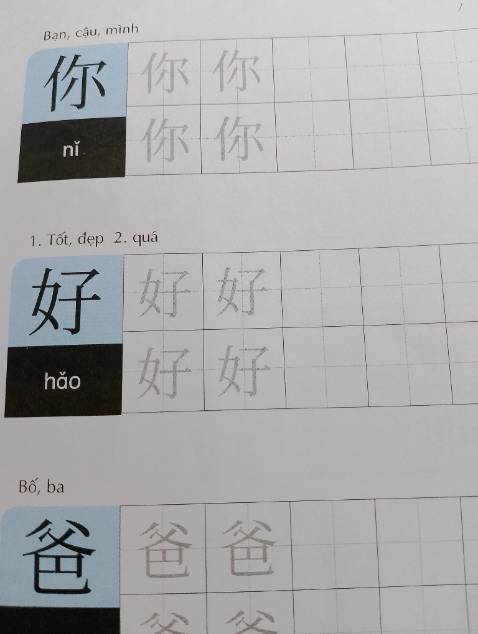 Bạn, cậu, mình
你 你 你
nǐ 你 你
1. Tốt, đẹp 2. quá
好 好 好
hǎo 好 好
Bố, ba
爸 爸 爸